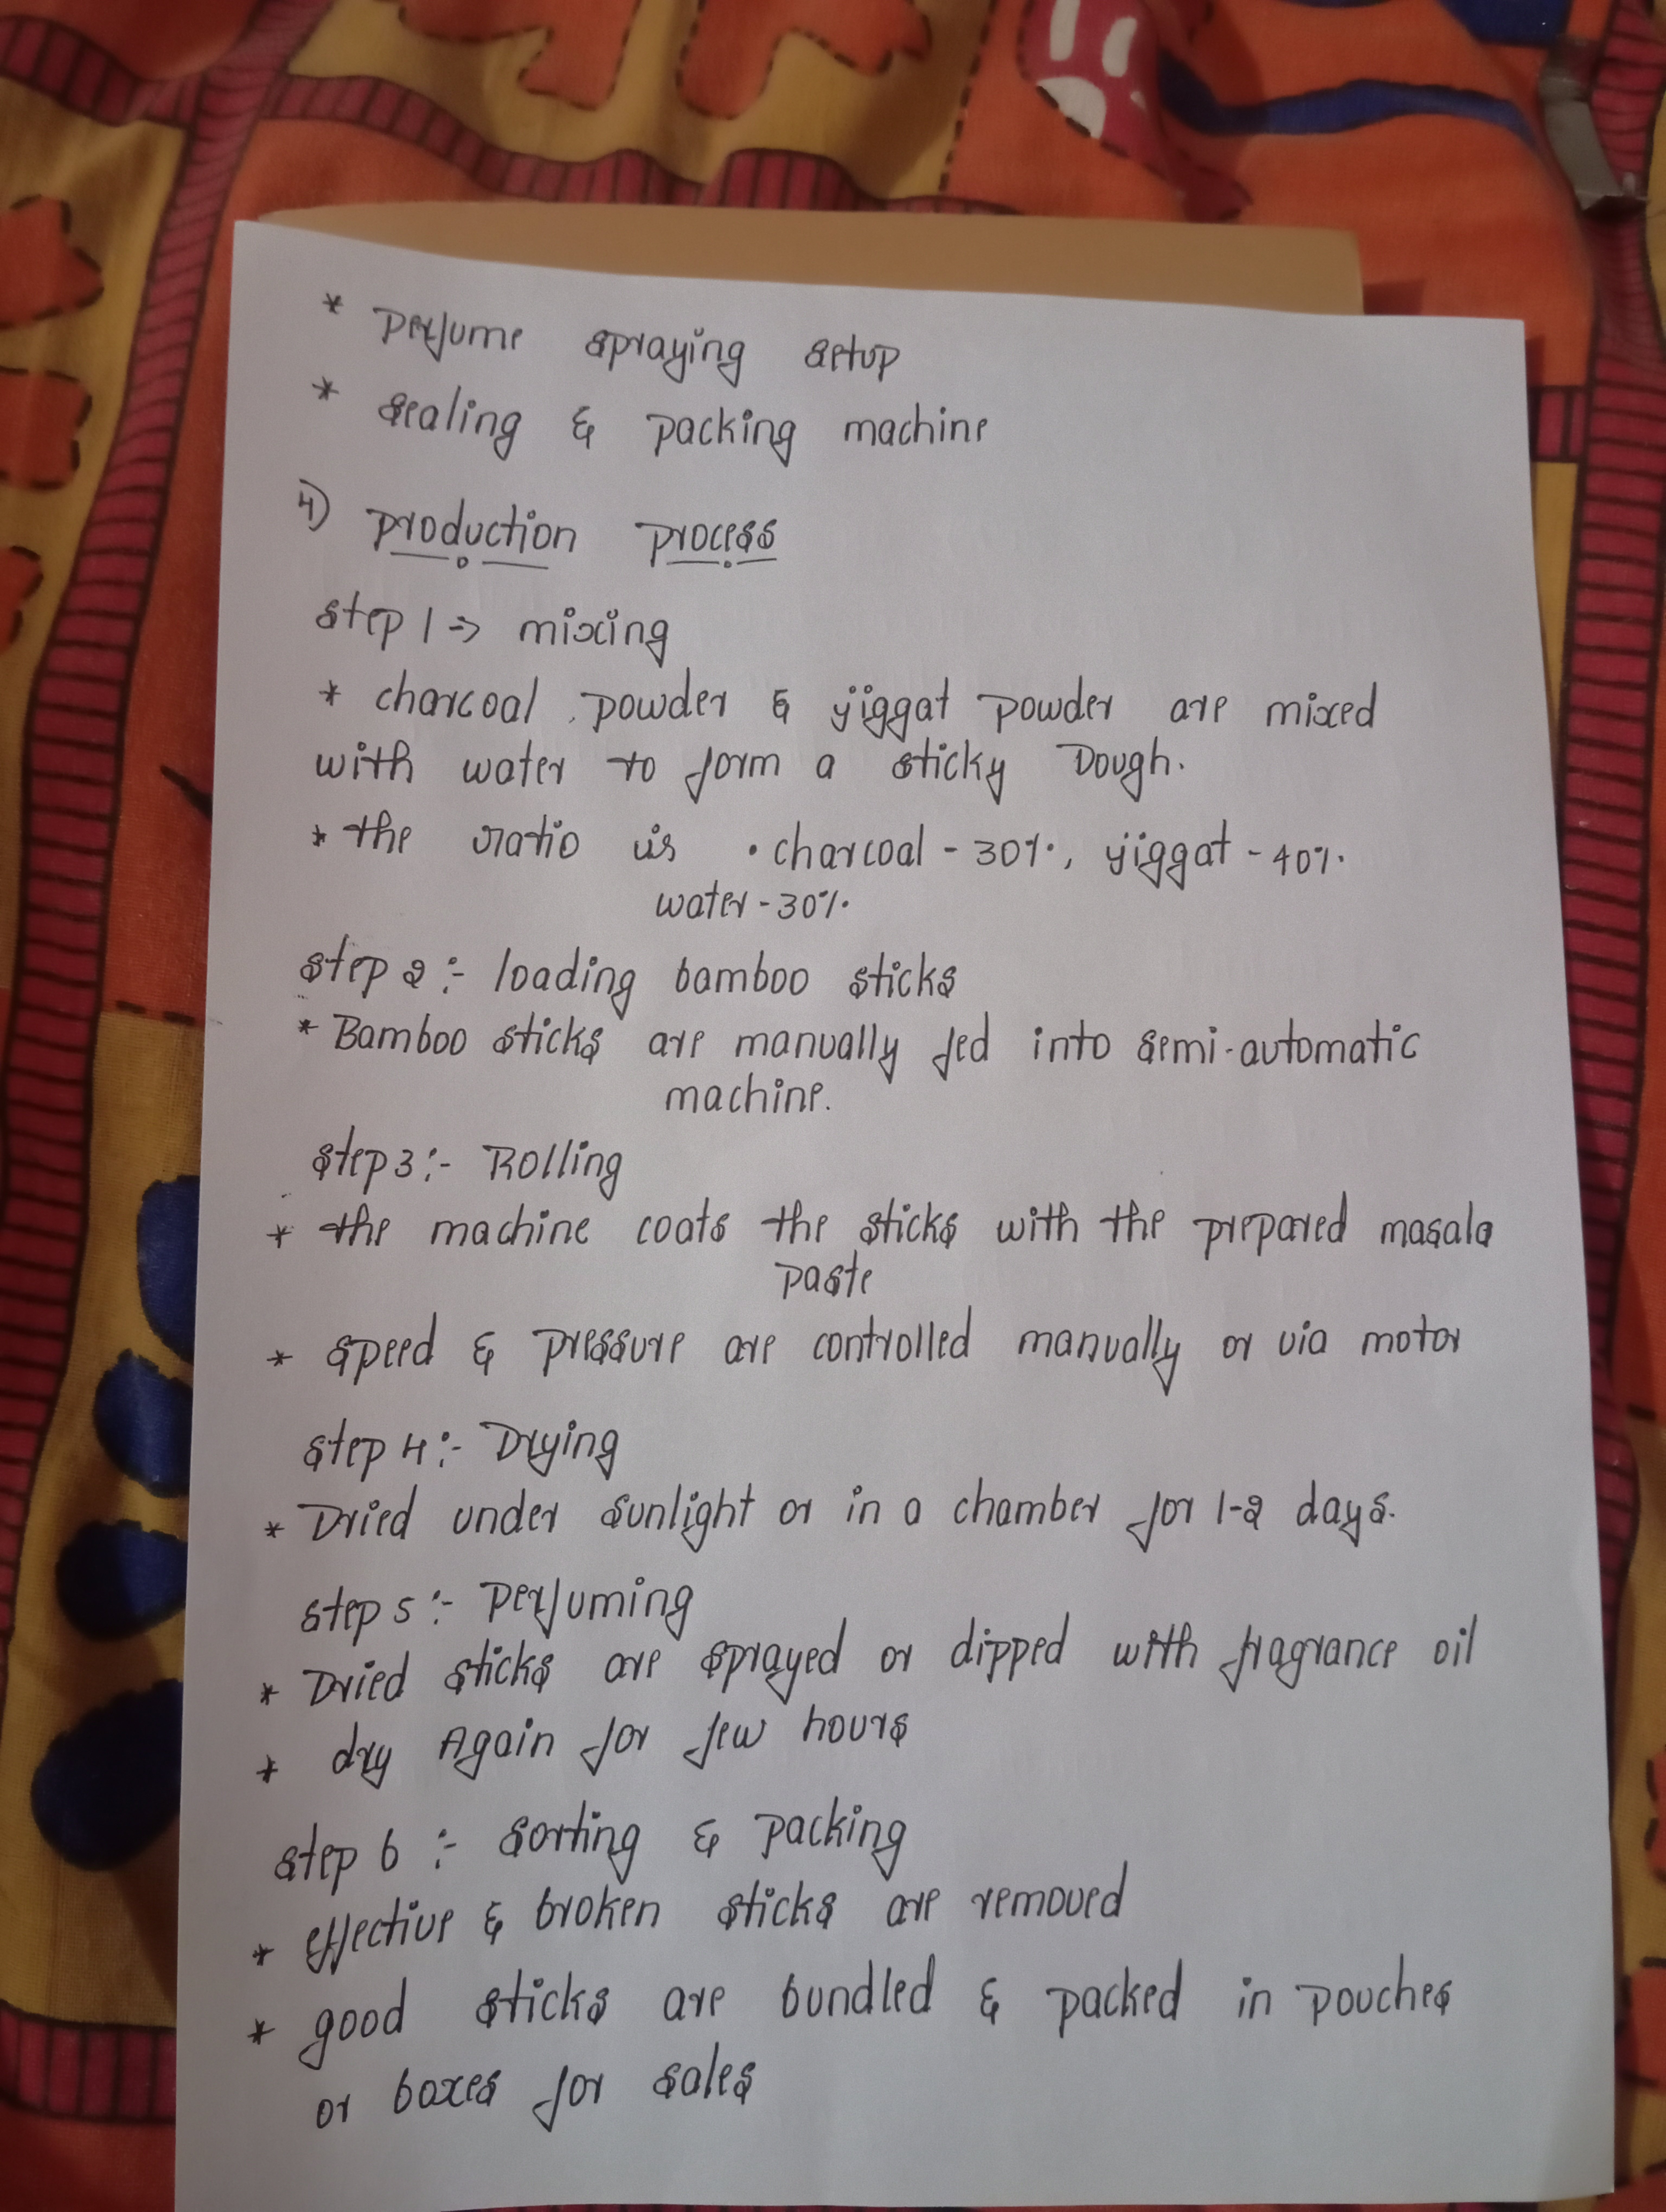 * Perfume spraying setup
* sealing & packing machine
4) production process
step 1 => mixing
* charcoal powder & jiggat powder are mixed
with water to form a sticky Dough.
* the ratio is • charcoal - 30%, jiggat - 40%
water - 30%
step 2 :- loading bamboo sticks
* Bamboo sticks are manually fed into semi-automatic
machine.
step 3 :- Rolling
* the machine coats the sticks with the prepared masala
paste
* speed & pressure are controlled manually or via motor
step 4 :- Drying
* Dried under sunlight or in a chamber for 1-2 days.
step 5 :- Perfuming
* Dried sticks are sprayed or dipped with fragrance oil
* dry Again for few hours
step 6 :- sorting & packing
* effective & broken sticks are removed
* good sticks are bundled & packed in pouches
or boxes for sales